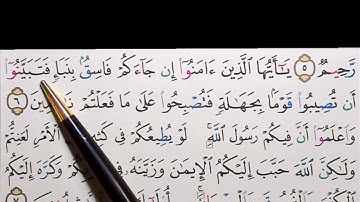 رَّحِيمٌ ٥ يَـٰٓأَيُّهَا ٱلَّذِينَ ءَامَنُوٓا۟ إِن جَآءَكُمْ فَاسِقٌۢ بِنَبَإٍ فَتَبَيَّنُوٓا۟
أَن تُصِيبُوا۟ قَوْمًۢا بِجَهَـٰلَةٍ فَتُصْبِحُوا۟ عَلَىٰ مَا فَعَلْتُمْ نَـٰدِمِينَ ٦
وَٱعْلَمُوٓا۟ أَنَّ فِيكُمْ رَسُولَ ٱللَّهِ ۚ لَوْ يُطِيعُكُمْ فِى كَثِيرٍ مِّنَ ٱلْأَمْرِ لَعَنِتُّمْ
وَلَـٰكِنَّ ٱللَّهَ حَبَّبَ إِلَيْكُمُ ٱلْإِيمَـٰنَ وَزَيَّنَهُۥ فِى قُلُوبِكُمْ وَكَرَّهَ إِلَيْكُمُ